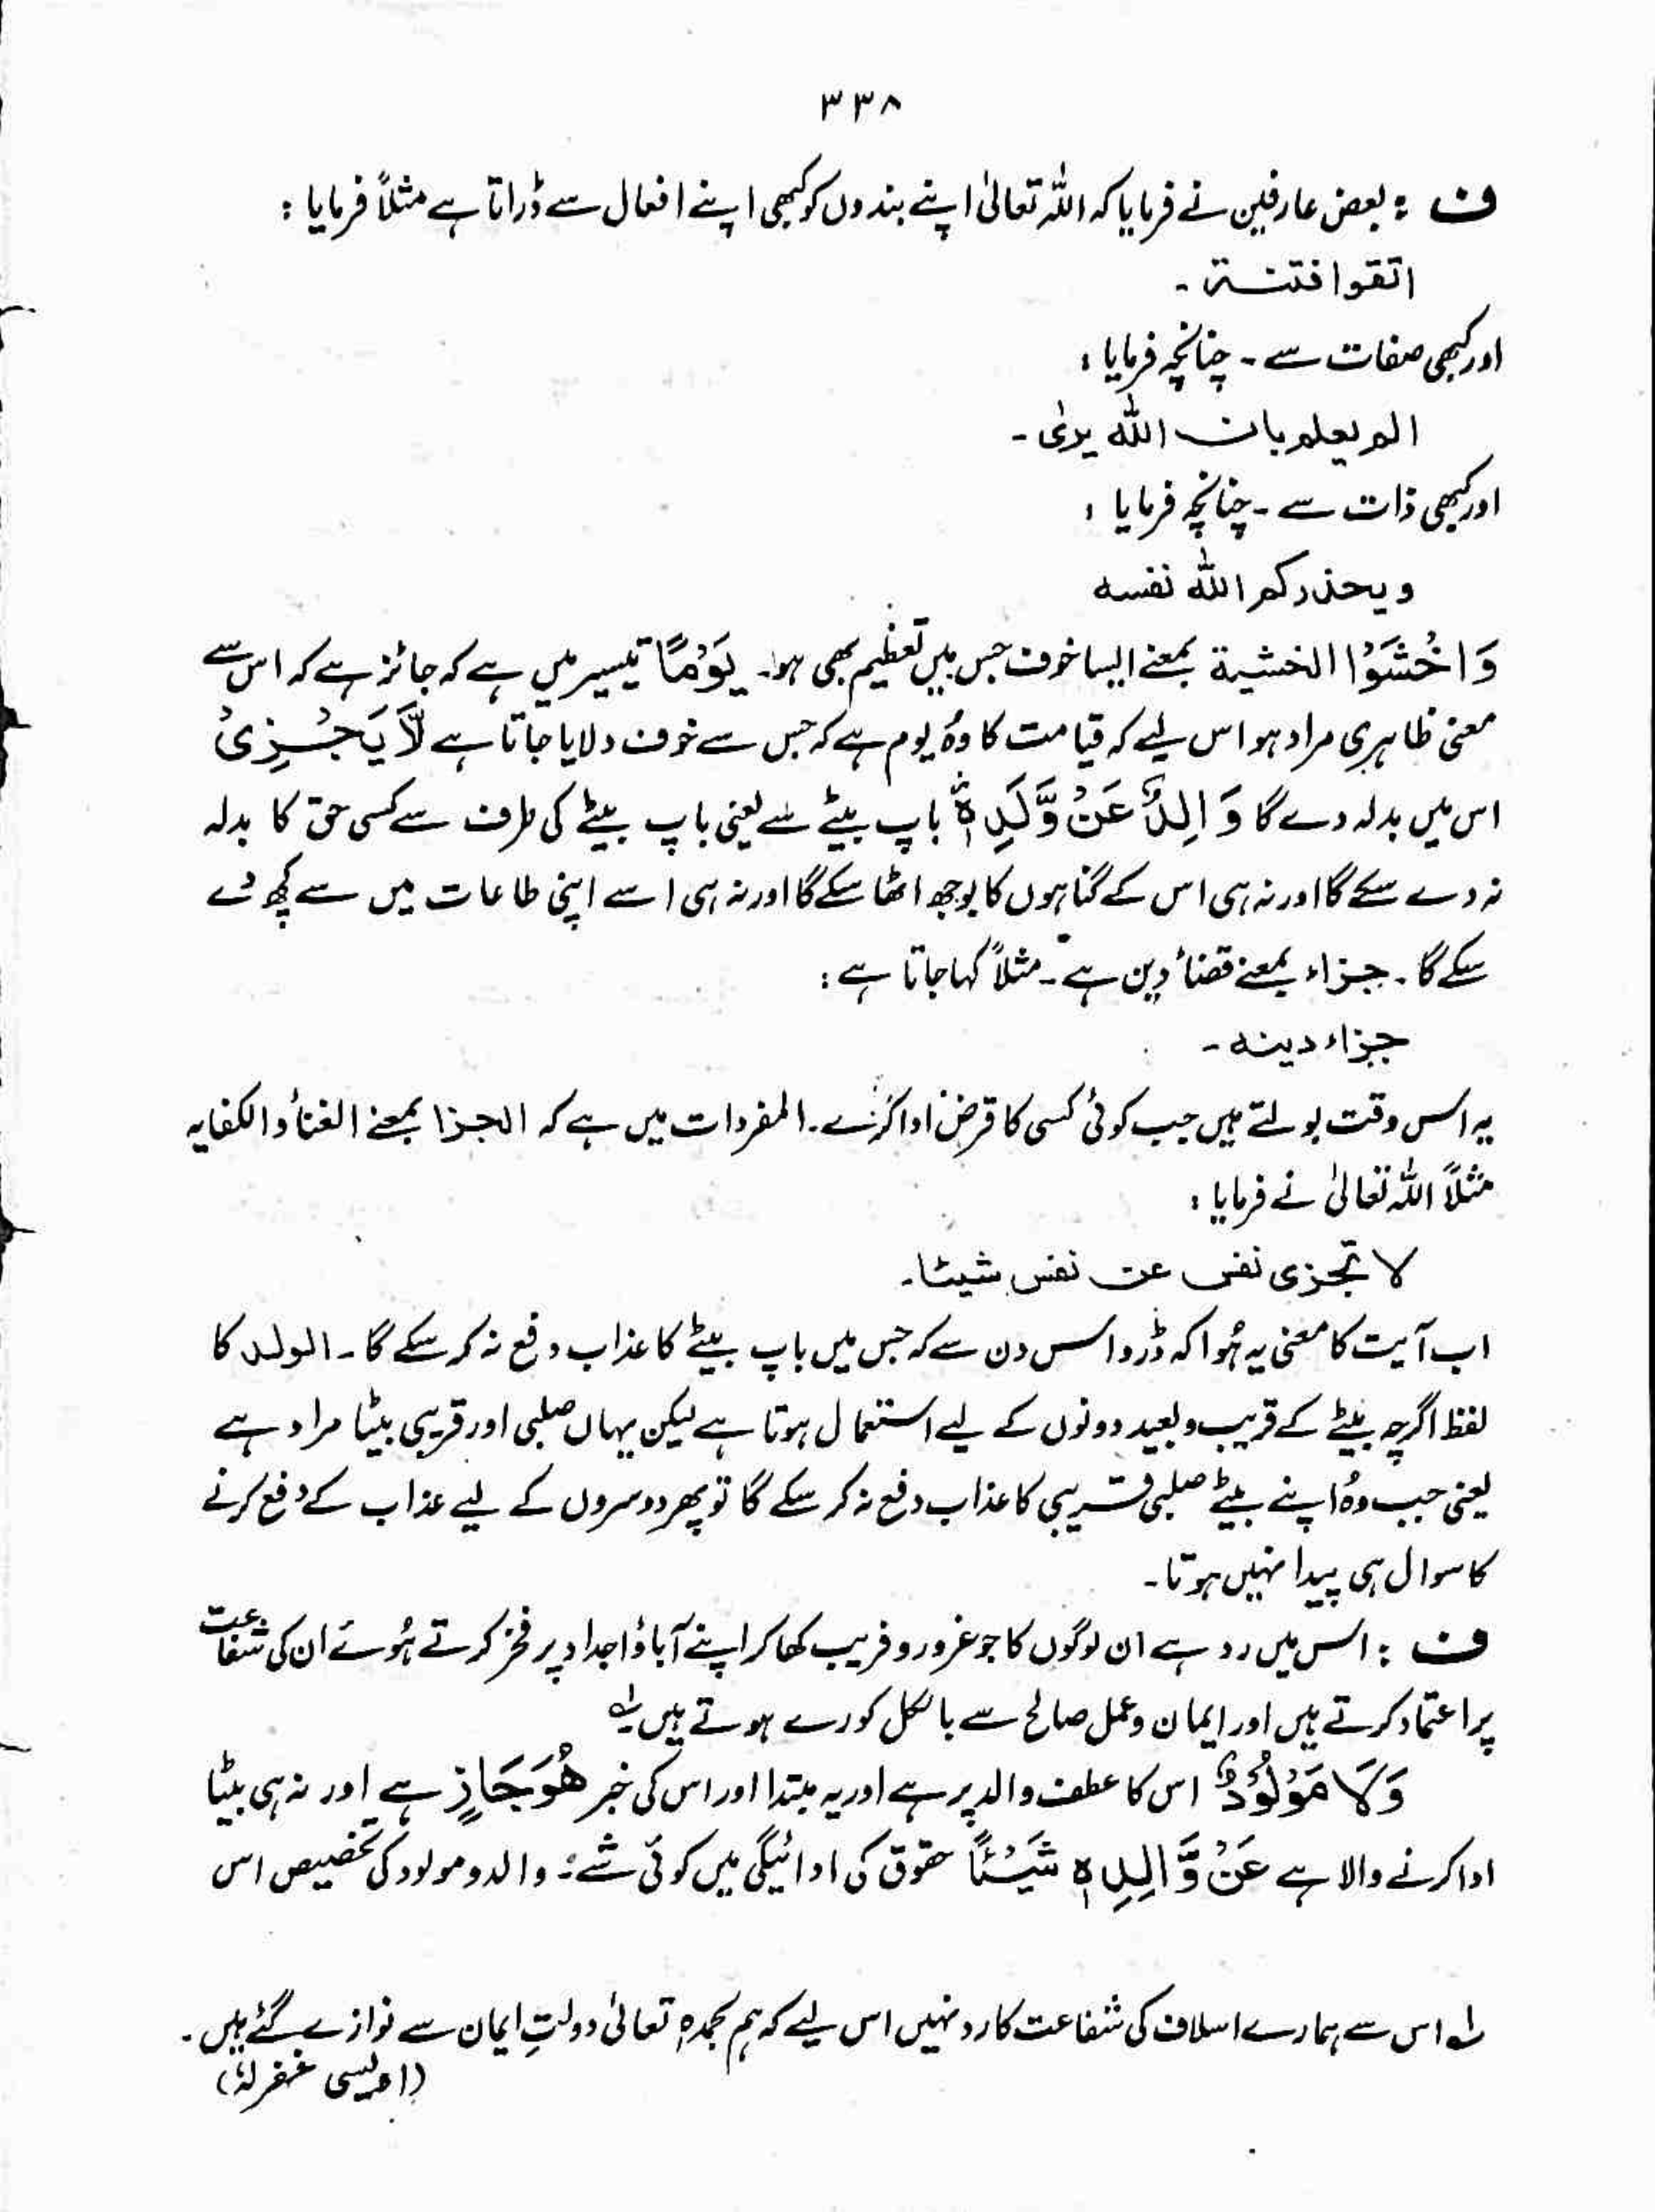 ۳۳۸
ف : بعض عارفین نے فرمایا کہ اللہ تعالیٰ اپنے بندوں کو کبھی اپنے افعال سے ڈراتا ہے مثلاً فرمایا :
اتقوا فتنۃ ۔
اور کبھی صفات سے ۔ چنانچہ فرمایا :
الم یعلم بان اللہ یریٰ ۔
اور کبھی ذات سے ۔ چنانچہ فرمایا :
ویحذرکم اللہ نفسه
وَاخْشَوْا الخشیة بمعنے ایسا خوف جس میں تعظیم بھی ہو۔ یَوْمًا تیسیر میں ہے کہ جائز ہے کہ اس سے
معنی ظاہری مراد ہو اس لیے کہ قیامت کا وُہ یوم ہے کہ جس سے خوف دلایا جاتا ہے لَّا یَجْزِیْ
اس میں بدلہ دے گا وَالِدٌ عَنْ وَّلَدِهٖ باپ بیٹے سے یعنی باپ بیٹے کی طرف سے کسی حق کا بدلہ
نہ دے سکے گا اور نہ ہی اس کے گناہوں کا بوجھ اٹھا سکے گا اور نہ ہی اسے اپنی طاعات میں سے کچھ دے
سکے گا ۔ جزاء بمعنے قضأ دین ہے ۔ مثلاً کہا جاتا ہے :
جزاء دینه ۔
یہ اس وقت بولتے ہیں جب کوئی کسی کا قرض ادا کرے ۔ المفردات میں ہے کہ الجزا بمعنے الغنأ والکفایہ
مثلاً اللہ تعالیٰ نے فرمایا :
لا تجزی نفس عن نفس شیئا ۔
اب آیت کا معنی یہ ہُوا کہ ڈرو اس دن سے کہ جس میں باپ بیٹے کا عذاب دفع نہ کر سکے گا ۔ الولد کا
لفظ اگرچہ بیٹے کے قریب و بعید دونوں کے لیے استعمال ہوتا ہے لیکن یہاں صلبی اور قریبی بیٹا مراد ہے
یعنی جب وُہ اپنے بیٹے صلبی قریبی کا عذاب دفع نہ کر سکے گا تو پھر دوسروں کے لیے عذاب کے دفع کرنے
کا سوال ہی پیدا نہیں ہوتا ۔
ف : اس میں رد ہے ان لوگوں کا جو غرور و فریب کھا کر اپنے آباؤ اجداد پر فخر کرتے ہُوئے ان کی شفاعت
پر اعتماد کرتے ہیں اور ایمان و عمل صالح سے بالکل کورے ہوتے ہیں لہ
وَلَا مَوْلُوْدٌ اس کا عطف والد پر ہے اور یہ مبتدا اور اس کی خبر هُوَجَازٍ ہے اور نہ ہی بیٹا
ادا کرنے والا ہے عَنْ وَّالِدِهٖ شَیْئًا حقوق کی ادائیگی میں کوئی شے ۔ والد و مولود کی تخصیص اس
لہ اس سے ہمارے اسلاف کی شفاعت کا رد نہیں اس لیے کہ ہم بحمدہٖ تعالیٰ دولتِ ایمان سے نوازے گئے ہیں ۔
(اویسی غفرلہٗ)